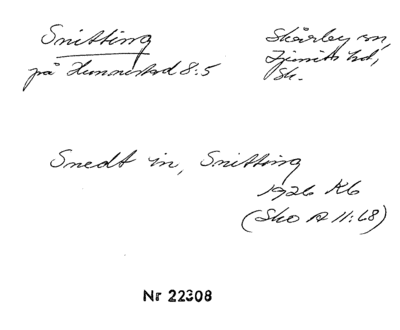 Snitting
på Hunnestad 8:5
Skårby sn,
Ljunits hd,
Sk.
Snedt in, Snitting
1926 Kb
(Sko A 11:68)
Nr 22308